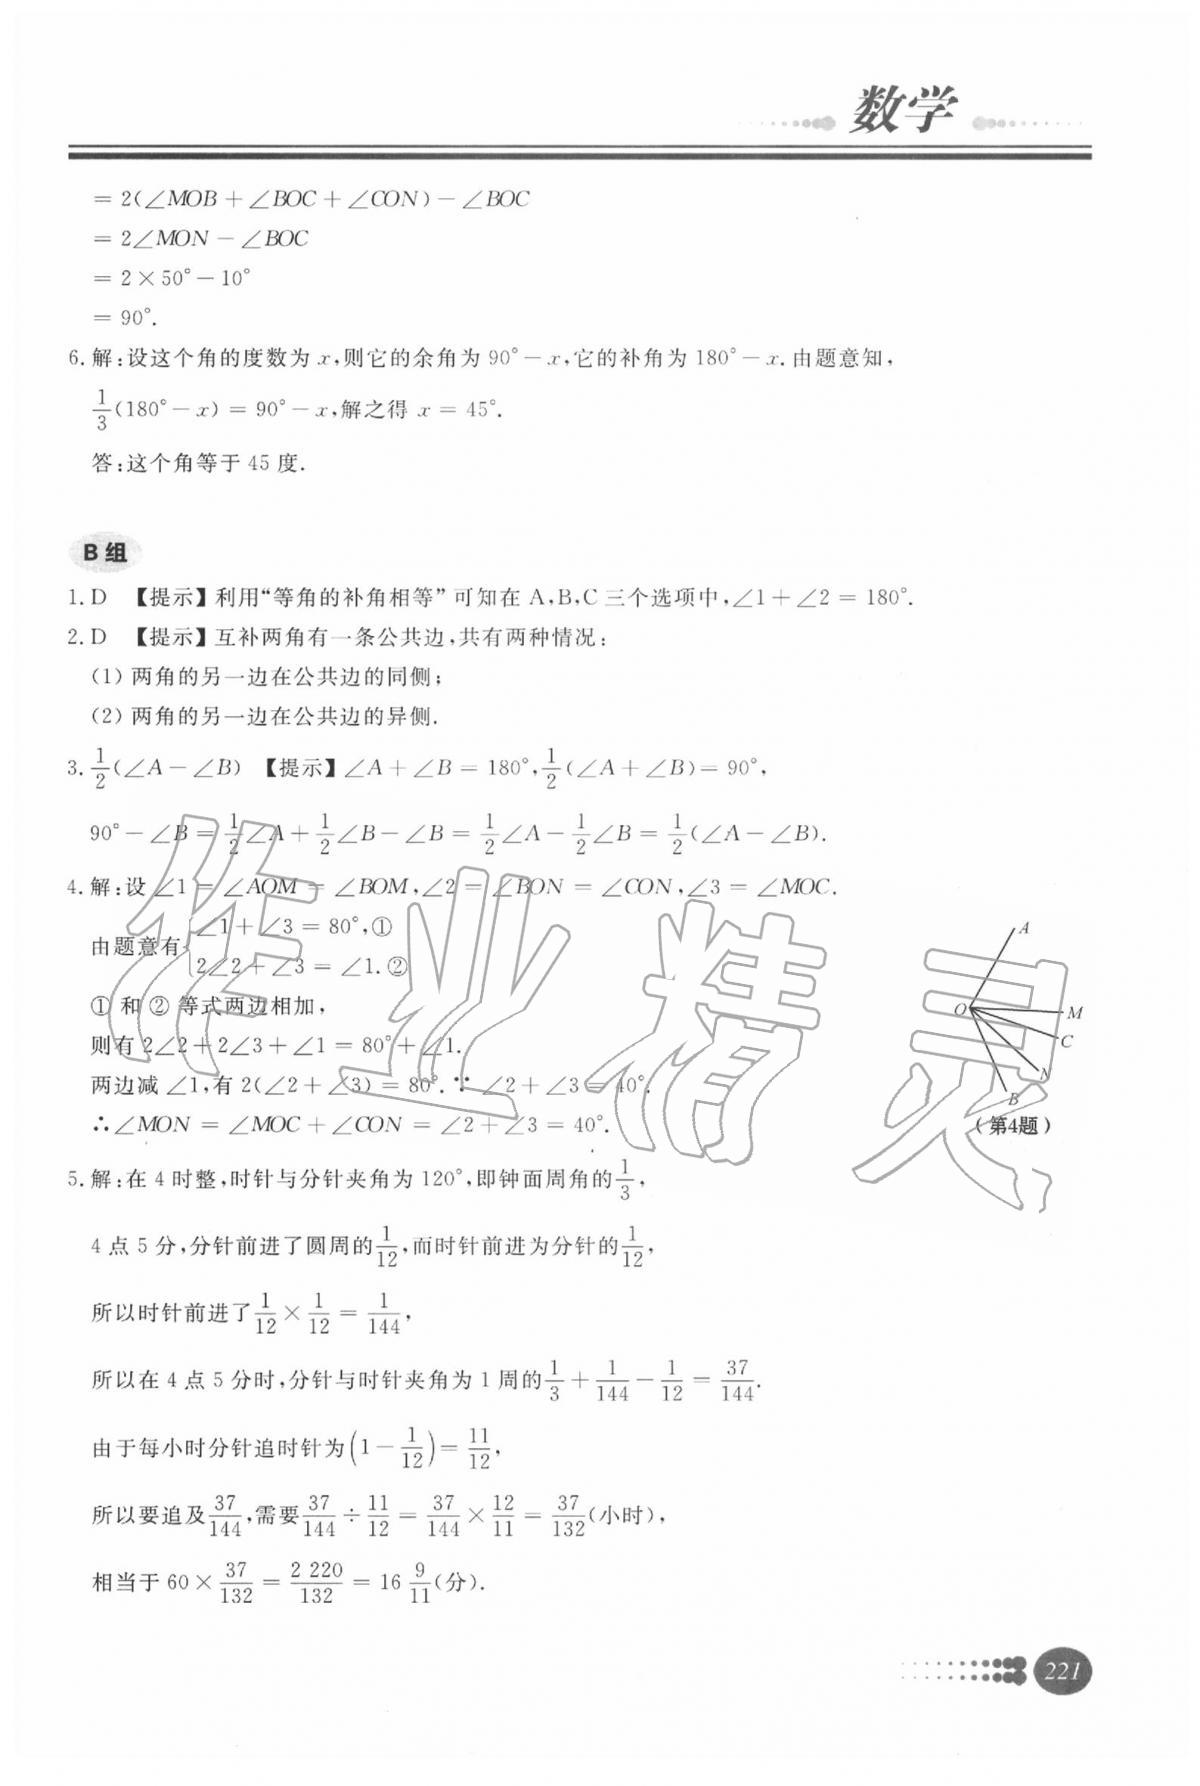 数学
= 2(∠MOB + ∠BOC + ∠CON) - ∠BOC
= 2∠MON - ∠BOC
= 2 × 50° - 10°
= 90°.
6. 解:设这个角的度数为 x,则它的余角为 90° - x,它的补角为 180° - x. 由题意知,
1/3(180° - x) = 90° - x,解之得 x = 45°.
答:这个角等于 45 度.
B 组
1. D 【提示】利用“等角的补角相等”可知在 A,B,C 三个选项中,∠1 + ∠2 = 180°.
2. D 【提示】互补两角有一条公共边,共有两种情况:
(1) 两角的另一边在公共边的同侧;
(2) 两角的另一边在公共边的异侧.
3. 1/2(∠A - ∠B) 【提示】∠A + ∠B = 180°,1/2(∠A + ∠B) = 90°,
90° - ∠B = 1/2∠A + 1/2∠B - ∠B = 1/2∠A - 1/2∠B = 1/2(∠A - ∠B).
4. 解:设 ∠1 = ∠AOM = ∠BOM,∠2 = ∠BON = ∠CON,∠3 = ∠MOC.
由题意有 {∠1 + ∠3 = 80°,①
2∠2 + ∠3 = ∠1. ②
① 和 ② 等式两边相加,
则有 2∠2 + 2∠3 + ∠1 = 80° + ∠1.
两边减 ∠1,有 2(∠2 + ∠3) = 80°. ∵ ∠2 + ∠3 = 40°.
∴ ∠MON = ∠MOC + ∠CON = ∠2 + ∠3 = 40°.
A
O
M
C
N
B
(第4题)
5. 解:在 4 时整,时针与分针夹角为 120°,即钟面周角的 1/3,
4 点 5 分,分针前进了圆周的 1/12,而时针前进为分针的 1/12,
所以时针前进了 1/12 × 1/12 = 1/144,
所以在 4 点 5 分时,分针与时针夹角为 1 周的 1/3 + 1/144 - 1/12 = 37/144.
由于每小时分针追时针为 (1 - 1/12) = 11/12,
所以要追及 37/144,需要 37/144 ÷ 11/12 = 37/144 × 12/11 = 37/132 (小时),
相当于 60 × 37/132 = 2 220/132 = 16 9/11 (分).
作业精灵
221